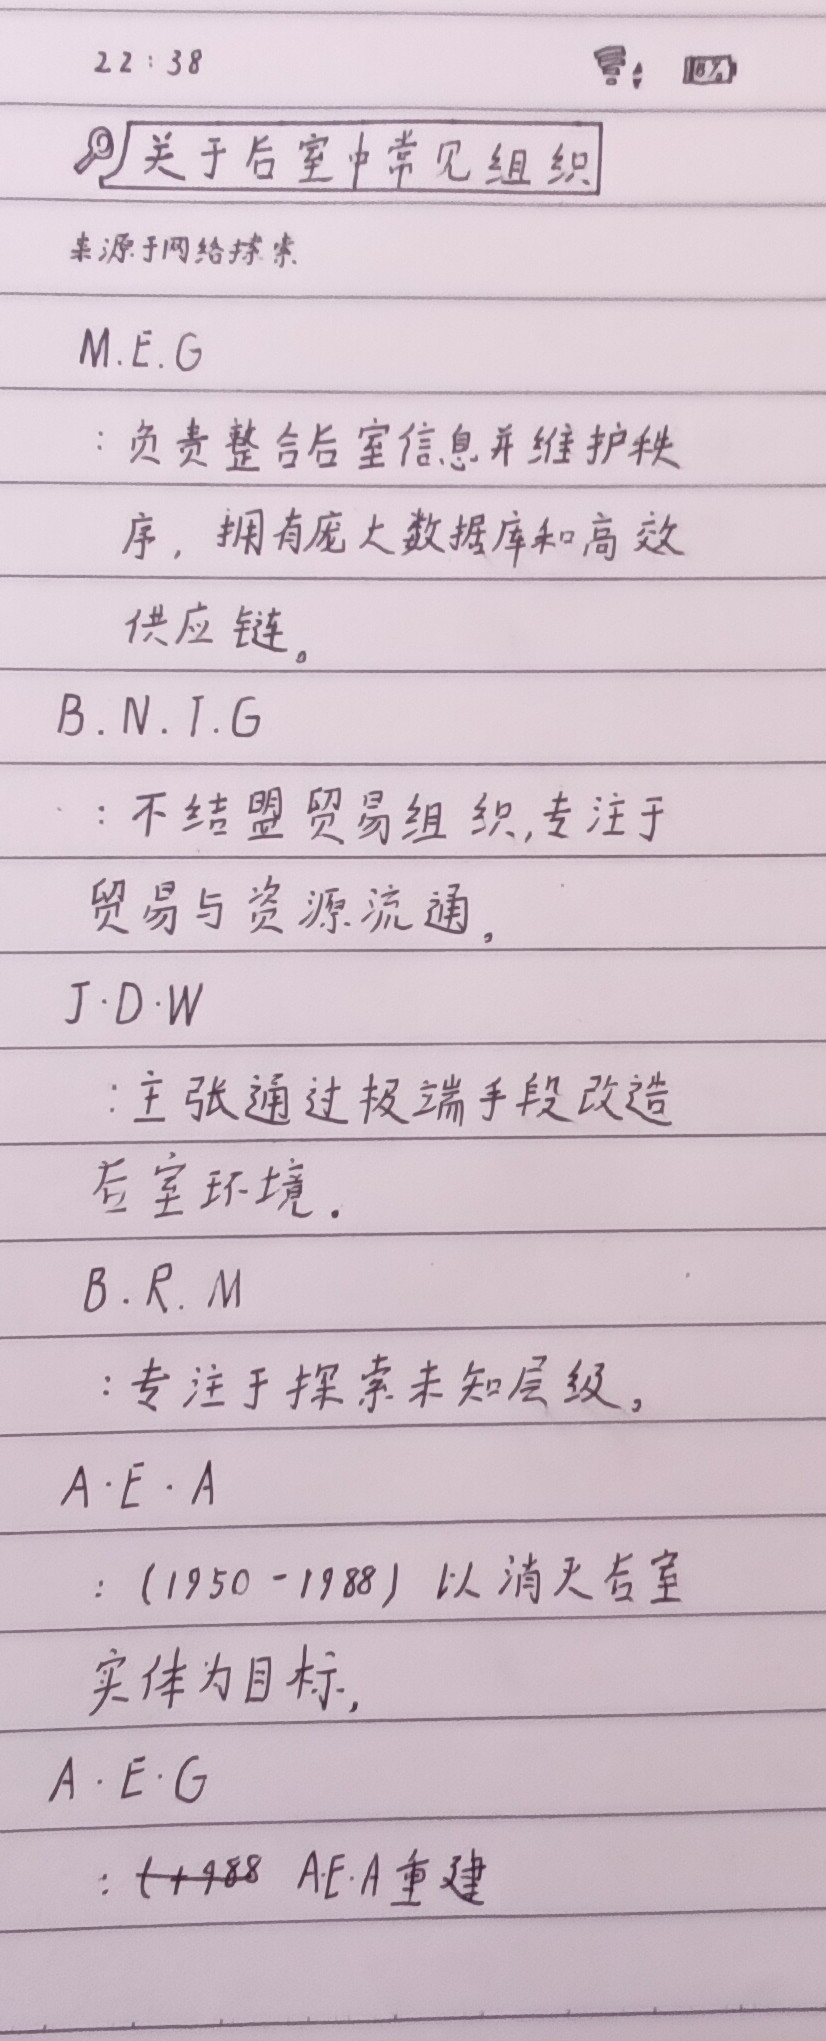 22:38 18%
关于后室中常见组织
来源于网络探索
M.E.G
:负责整合后室信息并维护秩
序,拥有庞大数据库和高效
供应链。
B.N.T.G
:不结盟贸易组织,专注于
贸易与资源流通。
J·D·W
:主张通过极端手段改造
后室环境.
B.R.M
:专注于探索未知层级。
A·E·A
:(1950-1988)以消灭后室
实体为目标,
A·E·G
:(1988 A·E·A重建